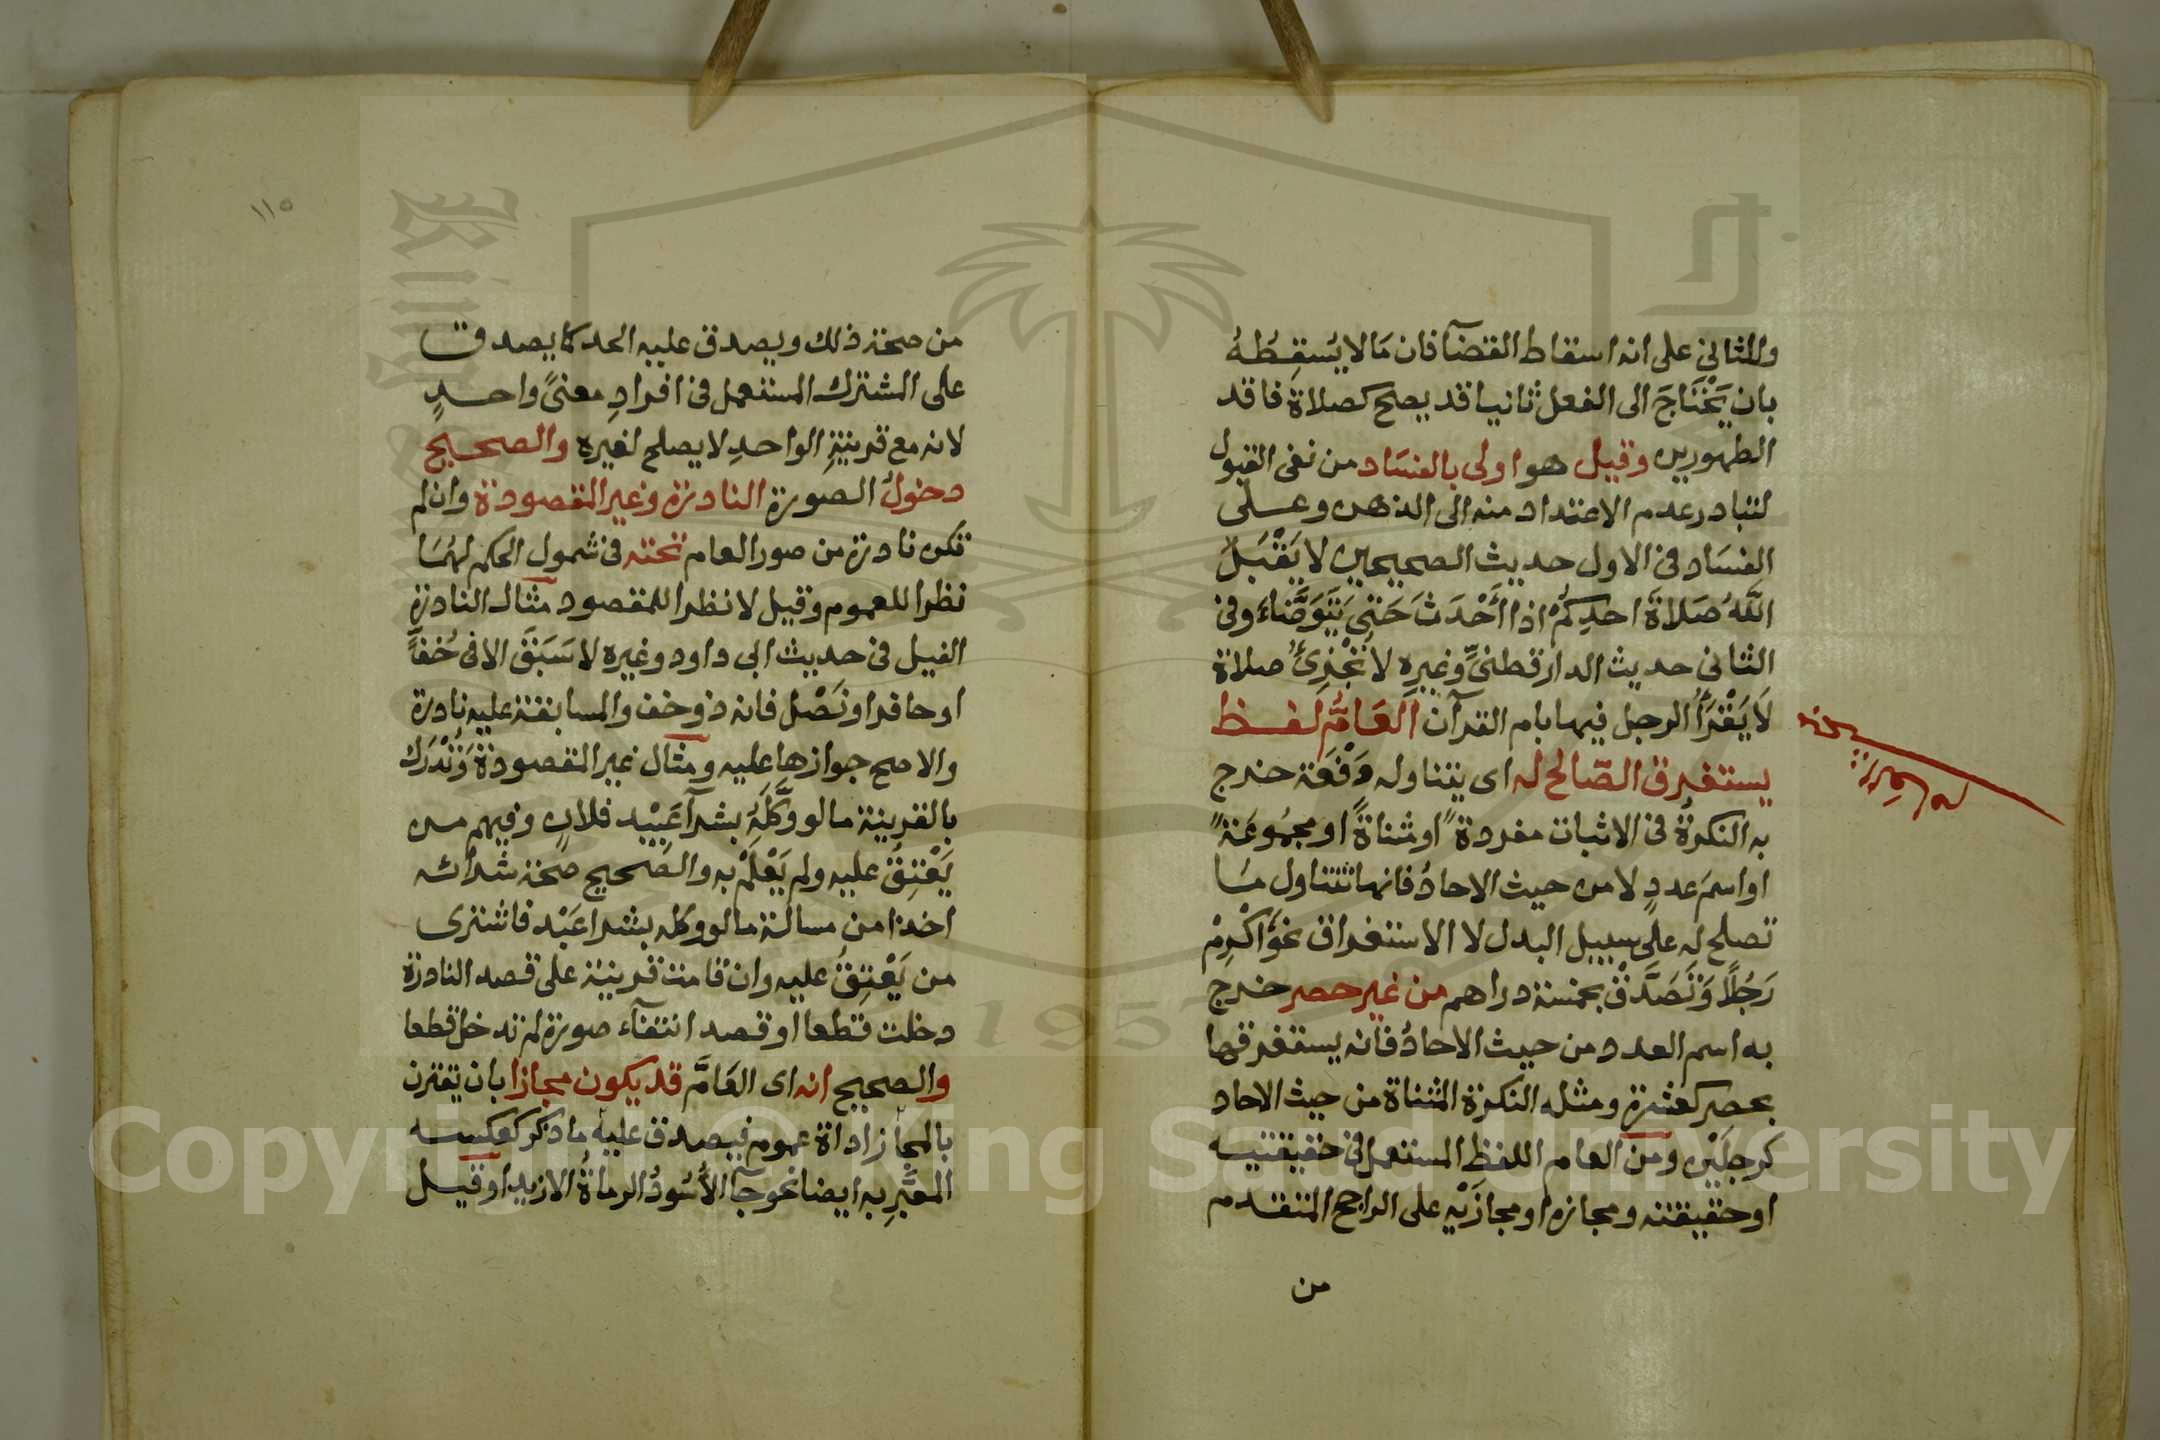 وللثاني على انه اسقاط القضآ فان مَا لا يُسقِطُهُ
بان يَحْتَاجَ الى الفعل ثانيا قد يصح كصلاة فاقد
الطهورين وقيل هو اولى بالفسَاد من نفى القبول
لتبادر عدم الاعتداد منه الى الذهن وعلى
الفسَاد في الاول حديث الصحيحين لا يَقْبَلُ
اللهُ صَلاةَ احدِكُمْ اذا أَحْدَثَ حَتى يَتَوَضَّاءَ وفي
الثانى حديث الدارقطنىِّ وغيرِه لا تُجْزِئُ صلاة
لاَ يَقْرَأُ الرجل فيها بام القرآن اَلعَامُّ لفظ
يستغرق الصّالح له اى يتناوله دَفْعَة خرج
به النكرةُ في الاثبات مفردةً اومثناةً او مجمُوعَةً
او اسمَ عددٍ لا من حيث الاحادُ فانها تتناول مَا
تصلح له على سبيل البدل لا الاستغراق نحو أَكْرِمْ
رَجُلاً وَتَصَدَّقْ بخمسة دراهم من غير حصر خرج
به اسم العدد من حيث الاحادُ فانه يستغرقها
بحصر كعشرة ومثله النكرة المثناة من حيث الاحاد
كرجلَيْن ومن العام اللفظ المستعمل في حقيقتيه
او حقيقته ومجازه او مجازَيْه على الراجح المتقدم
من
١١٥
من صحة ذلك ويصدق عليه الحد كما يصدق
على المشترك المستعمل في افرادِ معنىً واحدٍ
لانه مع قرينةِ الواحدِ لا يصلح لغيره والصحيح
دخولُ الصورة النادرة وغير المقصودة وان لم
تكن نادرة من صور العام تحته في شمول الحكم لهمَا
نظرا للعموم وقيل لا نظرا للمقصود مثال النادرة
الفيل في حديث ابى داود وغيره لا سَبَقَ الا في خُفٍّ
او حافر او نَصْل فانه ذو خف والمسابقة عليه نادرة
والاصح جوازها عليه ومثال غير المقصودة وَتُدْرَك
بالقرينة ما لو وَكَّلَهُ بشرآ عَبيْد فلان وفيهم من
يَعْتِقُ عليه ولم يَعْلَمْ به والصحيح صحة شرائه
اخذا من مسالة ما لو وكله بشرا عَبْد فاشترى
من يَعْتِقُ عليه وان قامت قرينة على قصد النادرة
دخلت قطعا او قصد انتفآء صورة لم تدخل قطعا
والصحيح انه اى العَامَّ قد يكون مجازا بان تقترن
بالمجاز اداة عموم فيصدق عليه ما ذكر كعكسه
المعَبَّرِ به ايضا نحو جآ الأُسُودُ الرماةُ الا زيدا وقيل
Copyright © King Saud University
1957